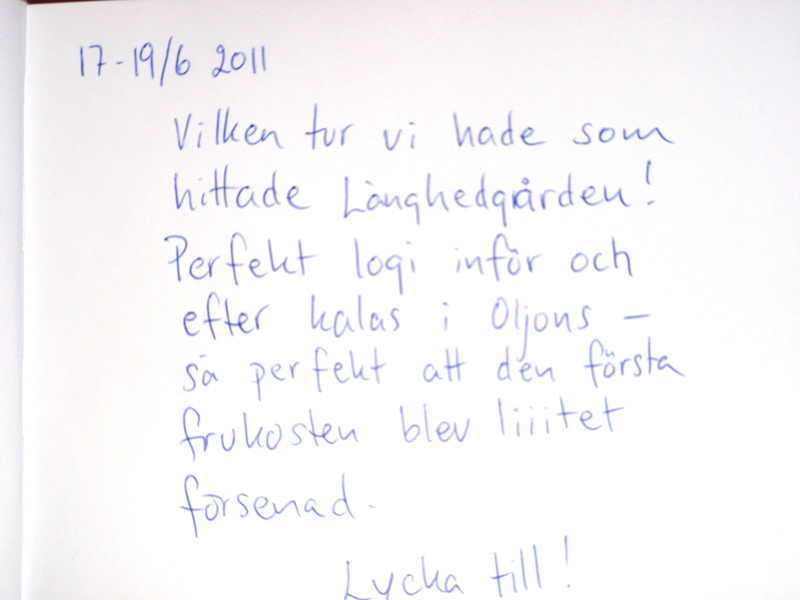 17-19/6 2011
Vilken tur vi hade som
hittade Långhedgården!
Perfekt logi inför och
efter kalas i Oljons –
så perfekt att den första
frukosten blev liiitet
försenad.
Lycka till!